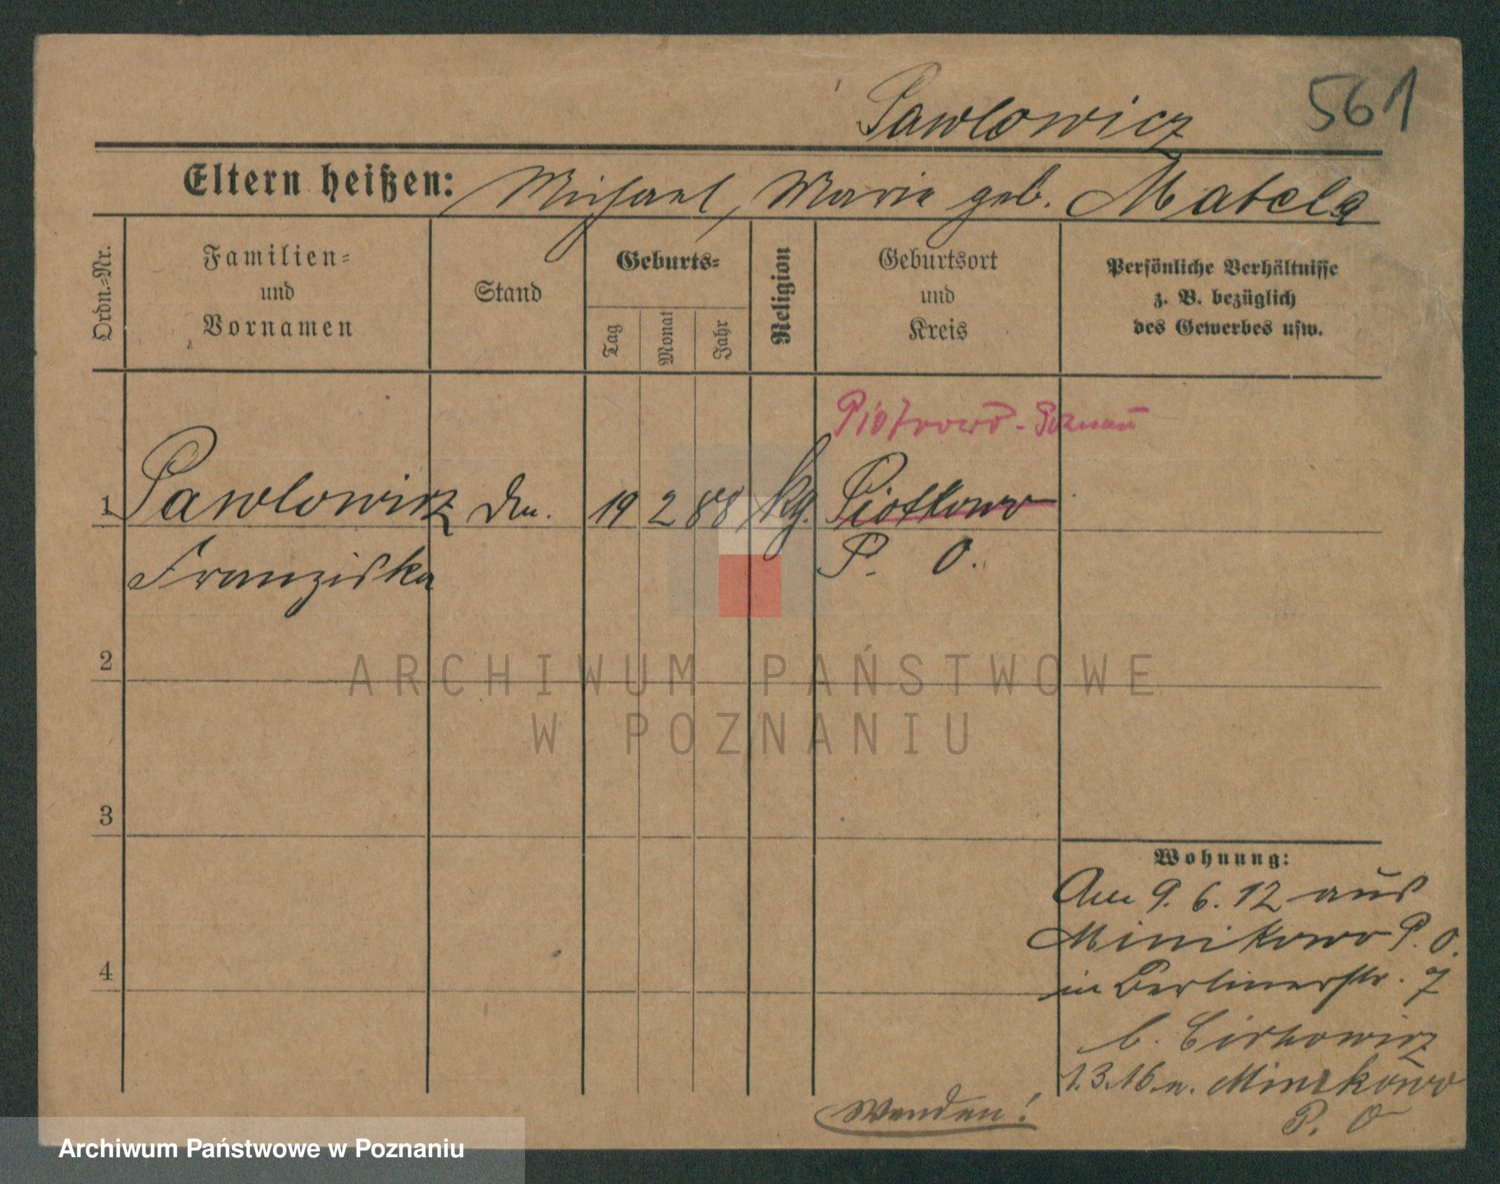 561
Pawlowicz
Eltern heißen: Michael, Marie geb. Matela
Ordn.-Nr.
Familien-
und
Vornamen
Stand
Geburts-
Tag
Monat
Jahr
Religion
Geburtsort
und
Kreis
Persönliche Verhältnisse
z. B. bezüglich
des Gewerbes usw.
Piotrowo-Posen
1 Pawlowicz 19 2 88 kg. Piotkowo
Franziska P. O.
2
ARCHIWUM PAŃSTWOWE
W POZNANIU
3
4
Wohnung:
Am 9. 6. 12 aus
Minikowo P. O.
in Berlinerstr. 7
b.
1.3.16 n. Minikowo
P. O
Wenden!
Archiwum Państwowe w Poznaniu